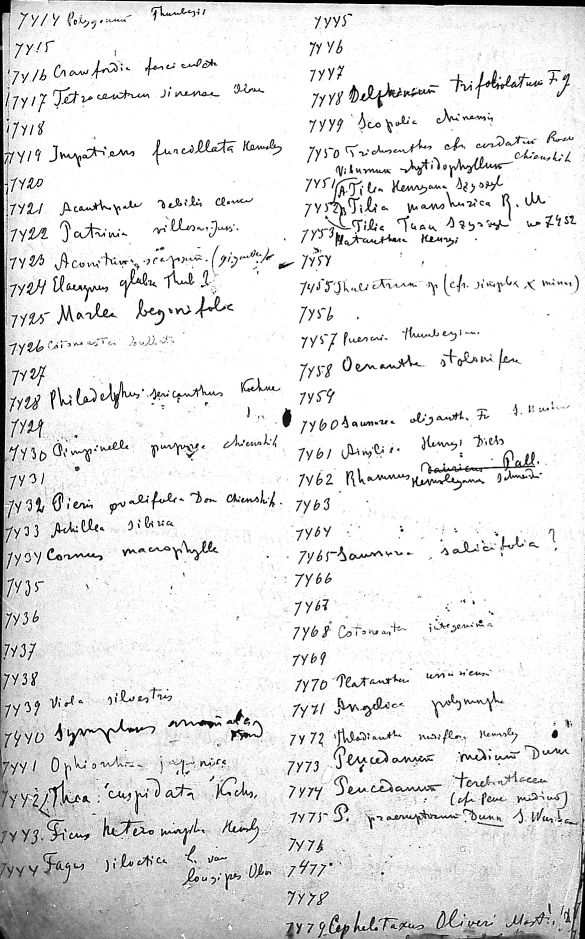 7414 Polygonum Thunbergii
7415
7416 Crawfordia fasciculata
7417 Tetracentrum sinense Oliv
7418
7419 Impatiens furcillata Hemsley
7420
7421 Acanthopale debilis
7422 Patrinia villosa Juss.
7423 Aconitum
7424 Elaeagnus glabra Thub ?
7425 Marlea begonifolia
7426 Cotoneaster bullata
7427
7428 Philadelphus sericanthus Koehne
7429
7430 Pimpinella purpurea chienshih
7431
7432 Pieris ovalifolia Don Chienshih.
7433 Achillea sibirica
7434 Cornus macrophylla
7435
7436
7437
7438
7439 Viola silvestris
7440 Symplocos
7441 Ophiorrhiza japonica
7442 Thea cuspidata Kochs.
7443 Ficus heteromorpha Hemsly
7444 Fagus silvatica L. var
longipes Oliv
7445
7446
7447
7448 Delphinium trifoliolatum F g
7449 Scopolia chinensis
7450 cfr. cordatum
Viburnum rhytidophyllum Chienshih
7451 A. Tilia Henryana Szyszyl
7452 B Tilia manshurica R. M
7453 Tilia Tuan Szyszyl no 7452
Platanthera Henryi
7454
7455 Thalictrum sp (cfr. simplex x minus)
7456
7457 Pueraria Thunbergiana
7458 Oenanthe stolonifera
7459
7460 Saussurea oligantha Fr
7461 Ainsliaea Henryi Diels
7462 Rhamnus davuricus Pall.
Hemsleyana Schneid
7463
7464
7465 Saussurea salicifolia ?
7466
7467
7468 Cotoneaster integerrima
7469
7470 Platanthera ussuriensis
7471 Angelica polymorpha
7472 Thladiantha nudiflora Hemsly
7473 Peucedanum medicum Dunn
7474 Peucedanum terebinthaceum
(cfr Peuc medicum)
7475 P. praeruptorum Dunn S Wushan
7476
7477
7478
7479 Cephalotaxus Oliveri Mast.